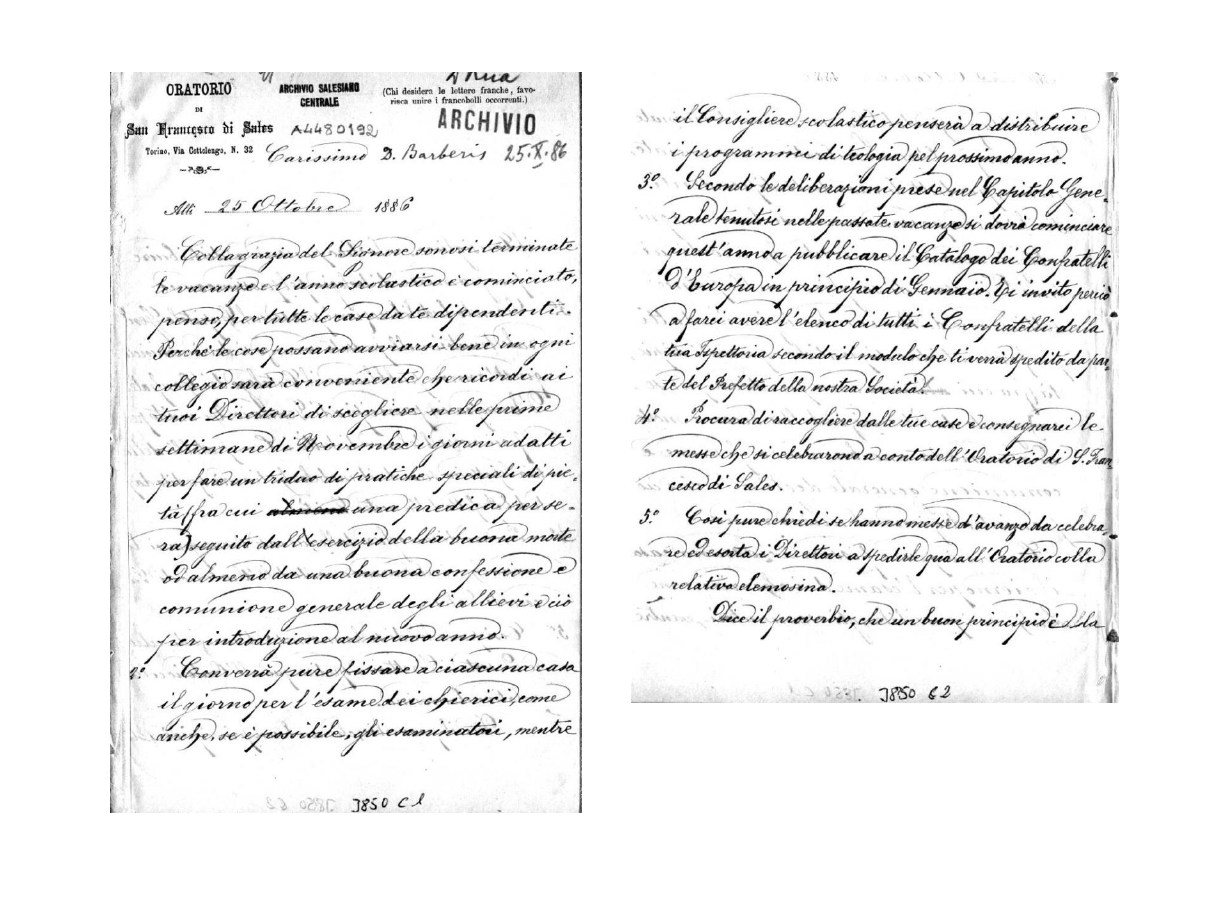 D Rua
ORATORIO
DI
San Francesco di Sales
Torino, Via Cottolengo, N. 32
ARCHIVIO SALESIANO
CENTRALE
A4480192
(Chi desidera le lettere franche, favo-
risca unire i francobolli occorrenti.)
ARCHIVIO
25.X.86
Carissimo D. Barberis
Atti 25 Ottobre 1886
Colla grazia del Signore sonosi terminate
le vacanze e l'anno scolastico è cominciato,
penso, per tutte le case da te dipendenti.
Perché le cose possano avviarsi bene in ogni
collegio sarà conveniente che ricordi ai
tuoi Direttori di scegliere nelle prime
settimane di Novembre i giorni adatti
per fare un triduo di pratiche speciali di pie-
tà (fra cui almeno una predica per se-
ra) seguito dall'esercizio della buona morte
od almeno da una buona confessione e
comunione generale degli allievi e ciò
per introduzione al nuovo anno.
2º Converrà pure fissare a ciascuna casa
il giorno per l'esame dei chierici, come
anche, se è possibile, gli esaminatori, mentre
J850 C1
il Consigliere scolastico penserà a distribuire
i programmi di teologia pel prossimo anno.
3º Secondo le deliberazioni prese nel Capitolo Gene-
rale tenutosi nelle passate vacanze si dovrà cominciare
quest'anno a pubblicare il Catalogo dei Confratelli
d'Europa in principio di Gennaio. Ti invito perciò
a farci avere l'elenco di tutti i Confratelli della
tua Ispettoria secondo il modulo che ti verrà spedito da par-
te del Prefetto della nostra Società.
4º Procura di raccogliere dalle tue case e consegnarci le
messe che si celebrarono a conto dell'Oratorio di S. Fran-
cesco di Sales.
5º Così pure chiedi se hanno messe d'avanzo da celebra-
re ed esorta i Direttori a spedirle qua all'Oratorio colla
relativa elemosina.
Dice il proverbio, che un buon principio è la
J850 C2